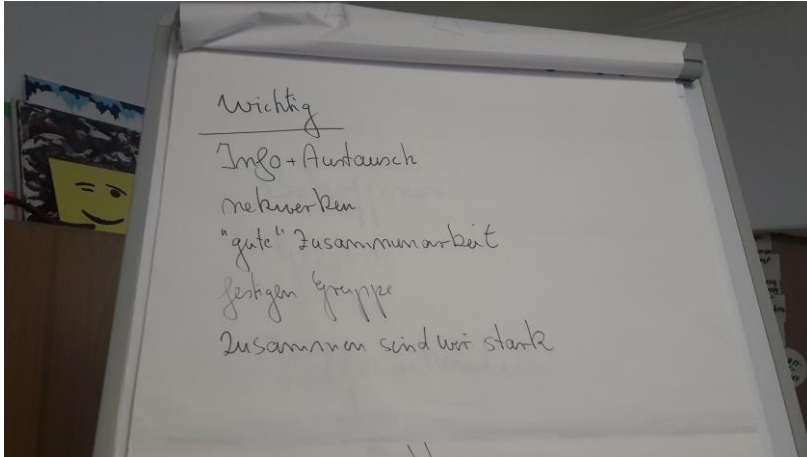 wichtig
Info + Austausch
netzwerken
"gute" Zusammenarbeit
festigen Gruppe
Zusammen sind wir stark